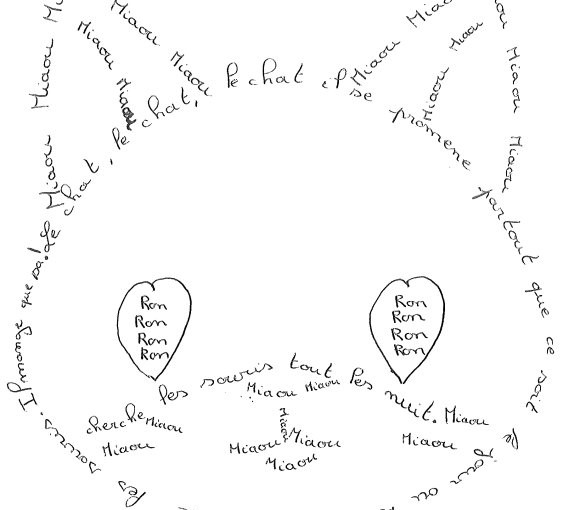 Miaou Miaou
Miaou Miaou
Miaou Miaou
Miaou Miaou
Miaou Miaou
Miaou Miaou
Le chat, le chat, le chat il se promene partout que ce soit le jour ou
les souris. Il mange que sa!
Ron
Ron
Ron
Ron
Ron
Ron
Ron
Ron
cherche les souris tout les nuit.
Miaou Miaou
Miaou
Miaou Miaou
Miaou
Miaou
Miaou
Miaou
Miaou